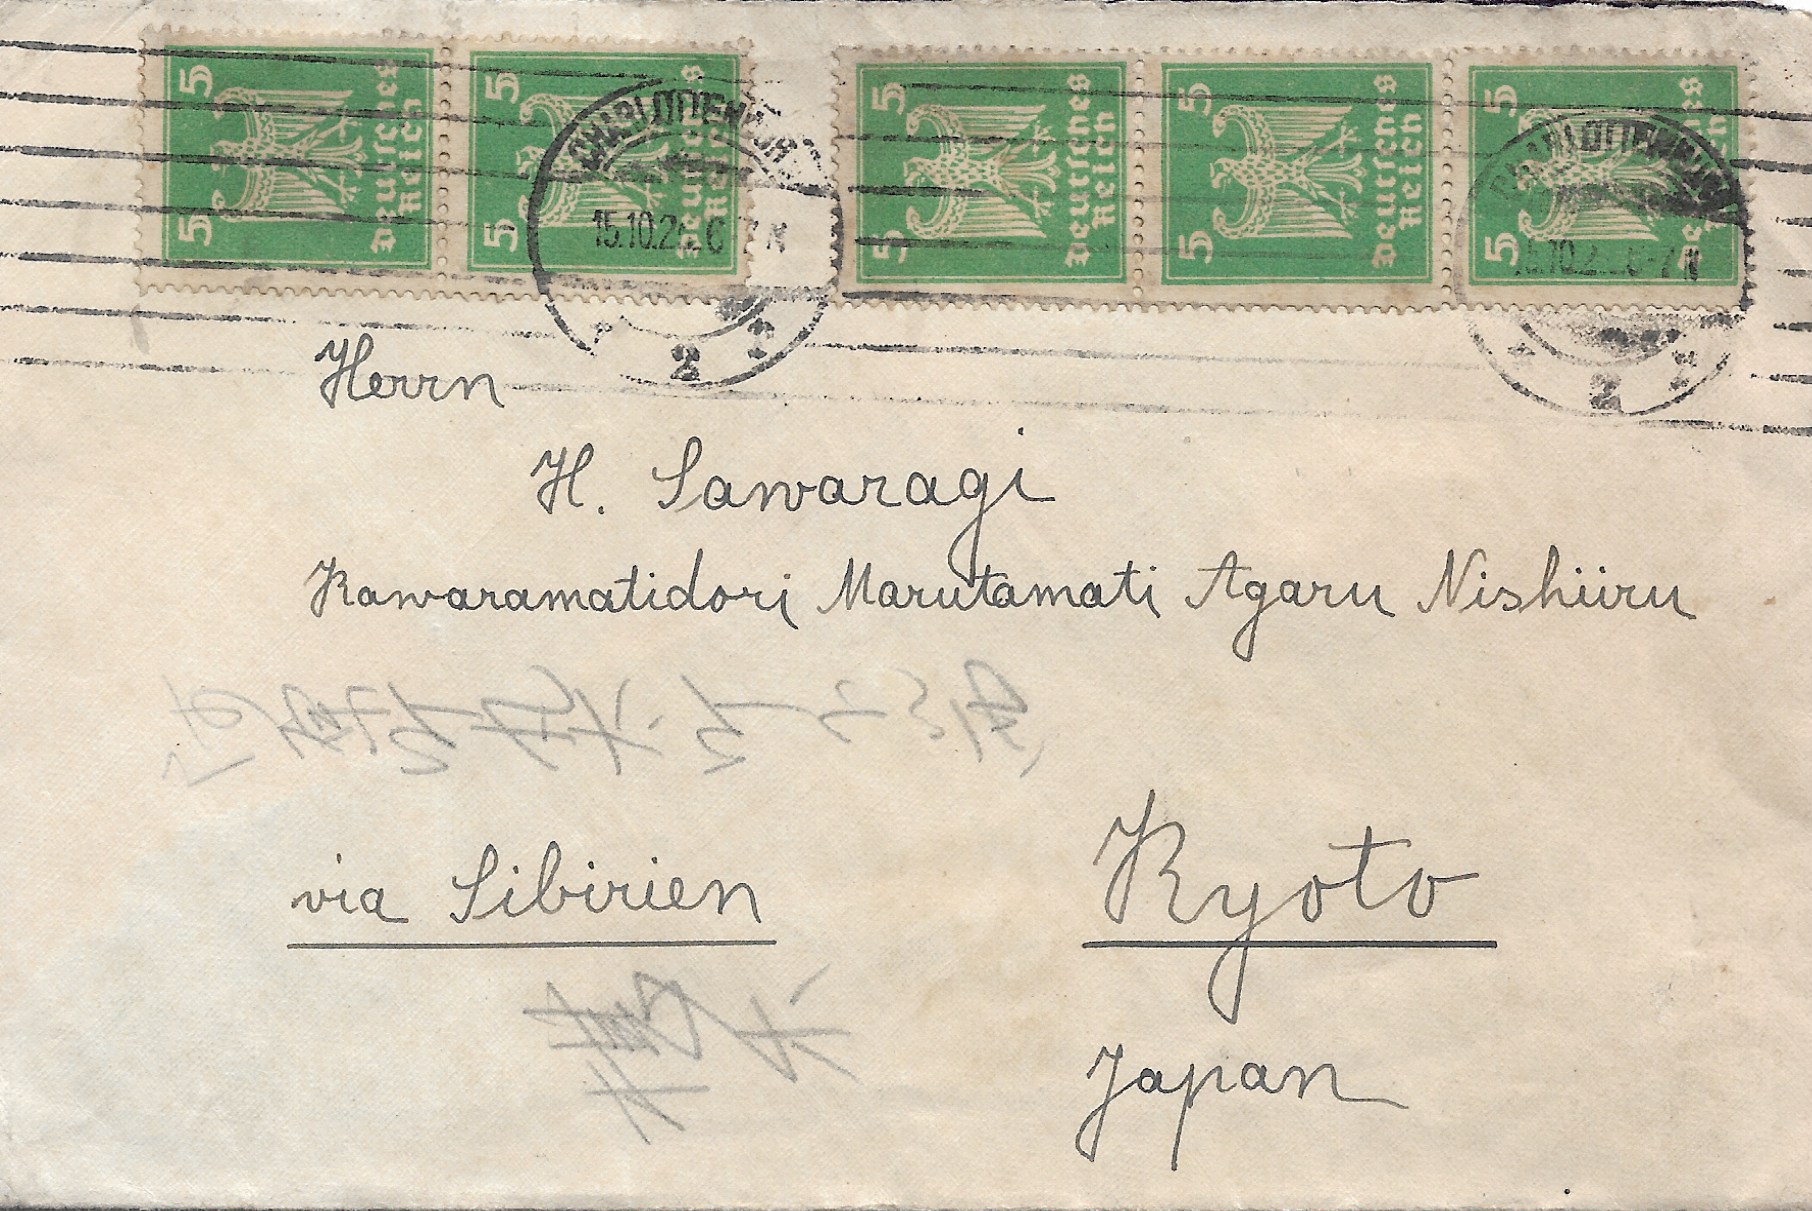 5 5 Deutsches Reich
5 5 Deutsches Reich
5 5 Deutsches Reich
5 5 Deutsches Reich
5 5 Deutsches Reich
CHARLOTTENBURG
15.10.2
2
CHARLOTTENBURG
15.10.2 6-7 N
2
Herrn
H. Sawaragi
Kawaramatidori Marutamati Agaru Nishiiru
via Sibirien
Kyoto
Japan